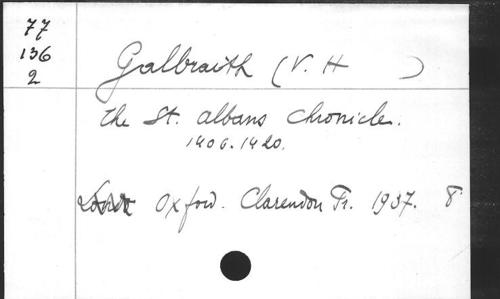 77
136
2
Galbraith (V. H )
the St. albans Chronicle.
1406.1420.
Oxford. Clarendon Pr. 1937. 8